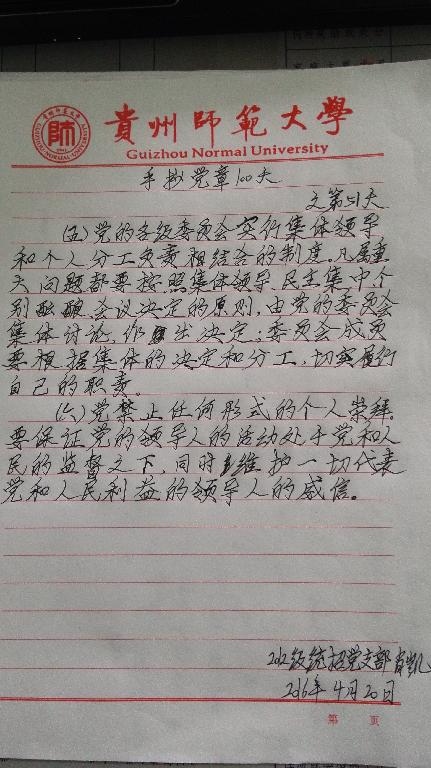 貴州師範大學
Guizhou Normal University
手抄党章100天
之第51天
(五)党的各级委员会实行集体领导
和个人分工负责相结合的制度。凡属重
大问题都要按照集体领导、民主集中、个
别酝酿、会议决定的原则,由党的委员会
集体讨论,作出决定;委员会成员
要根据集体的决定和分工,切实履行
自己的职责。
(六)党禁止任何形式的个人崇拜。
要保证党的领导人的活动处于党和人
民的监督之下,同时维护一切代表
党和人民利益的领导人的威信。
级统招党支部 肖凯
2016年4月20日
第 页